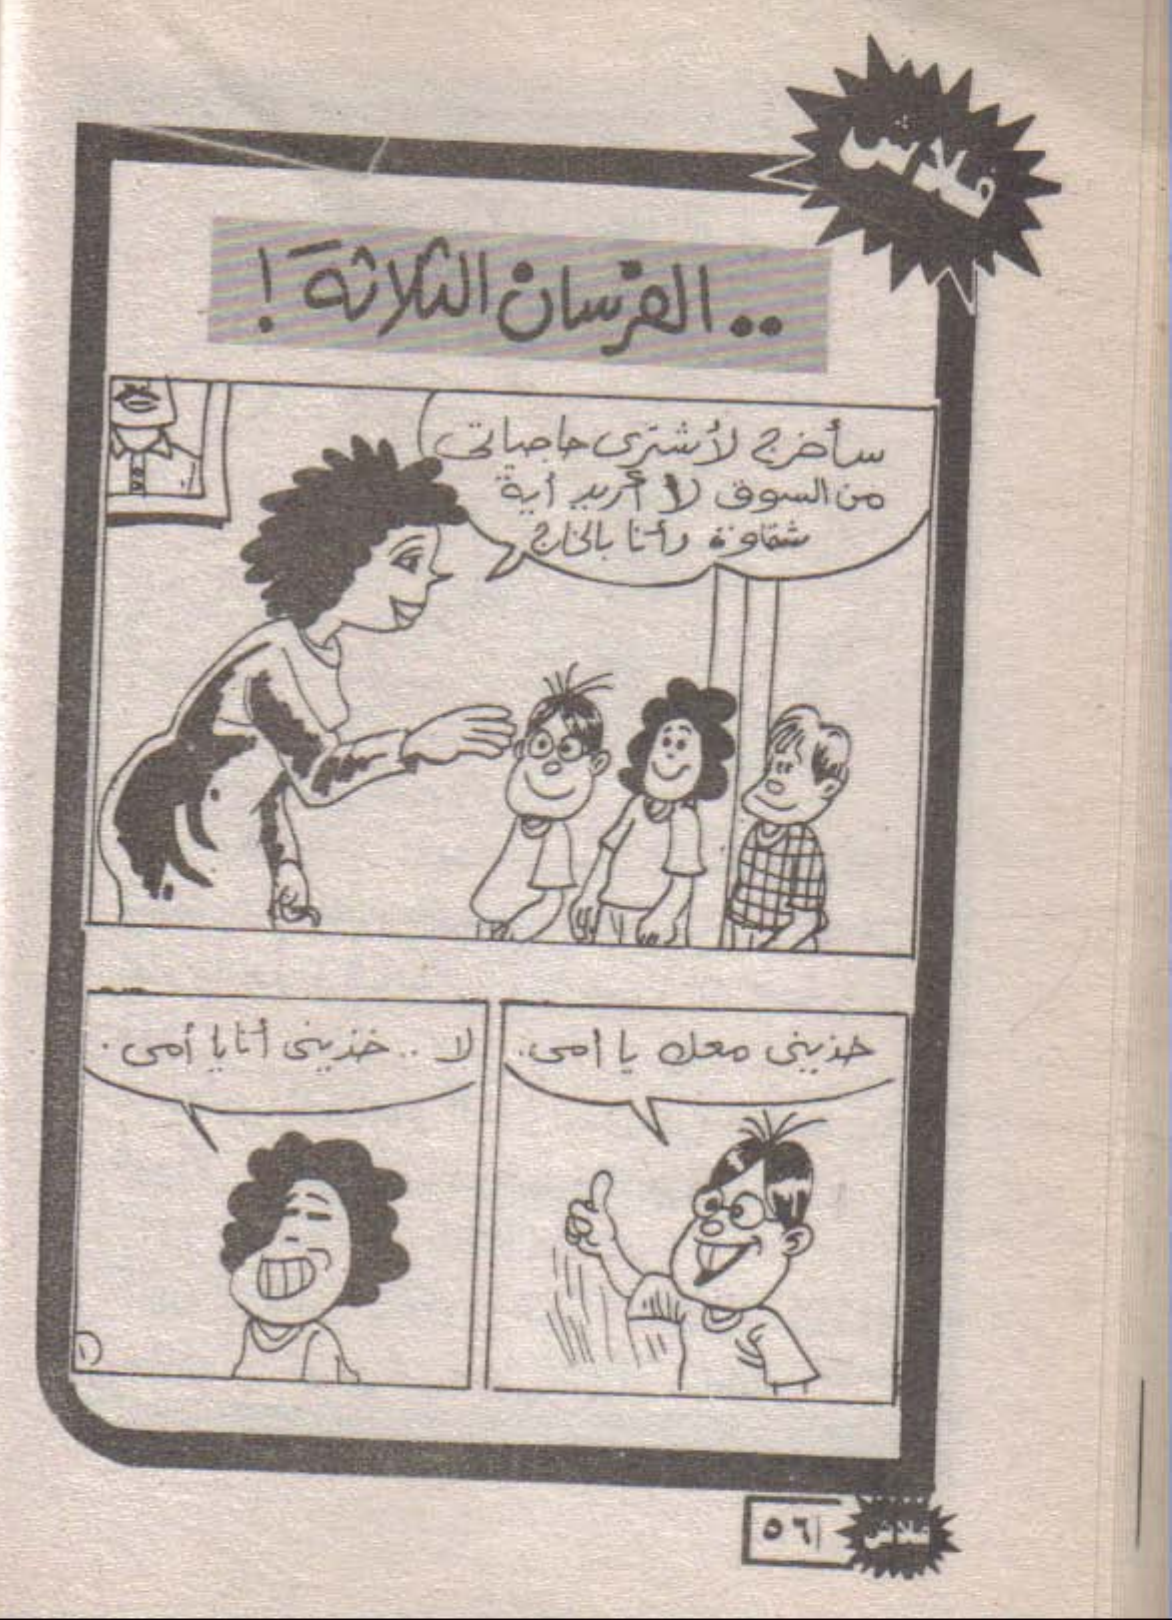 فلاش
.. الفرسان الثلاثة !
سأخرج لأشترى حاجياتى
من السوق لا أريد أية
شقاوة وأنا بالخارج
خذينى معك يا أمى.
لا .. خذينى أنا يا أمى.
١
٥٦
فلاش